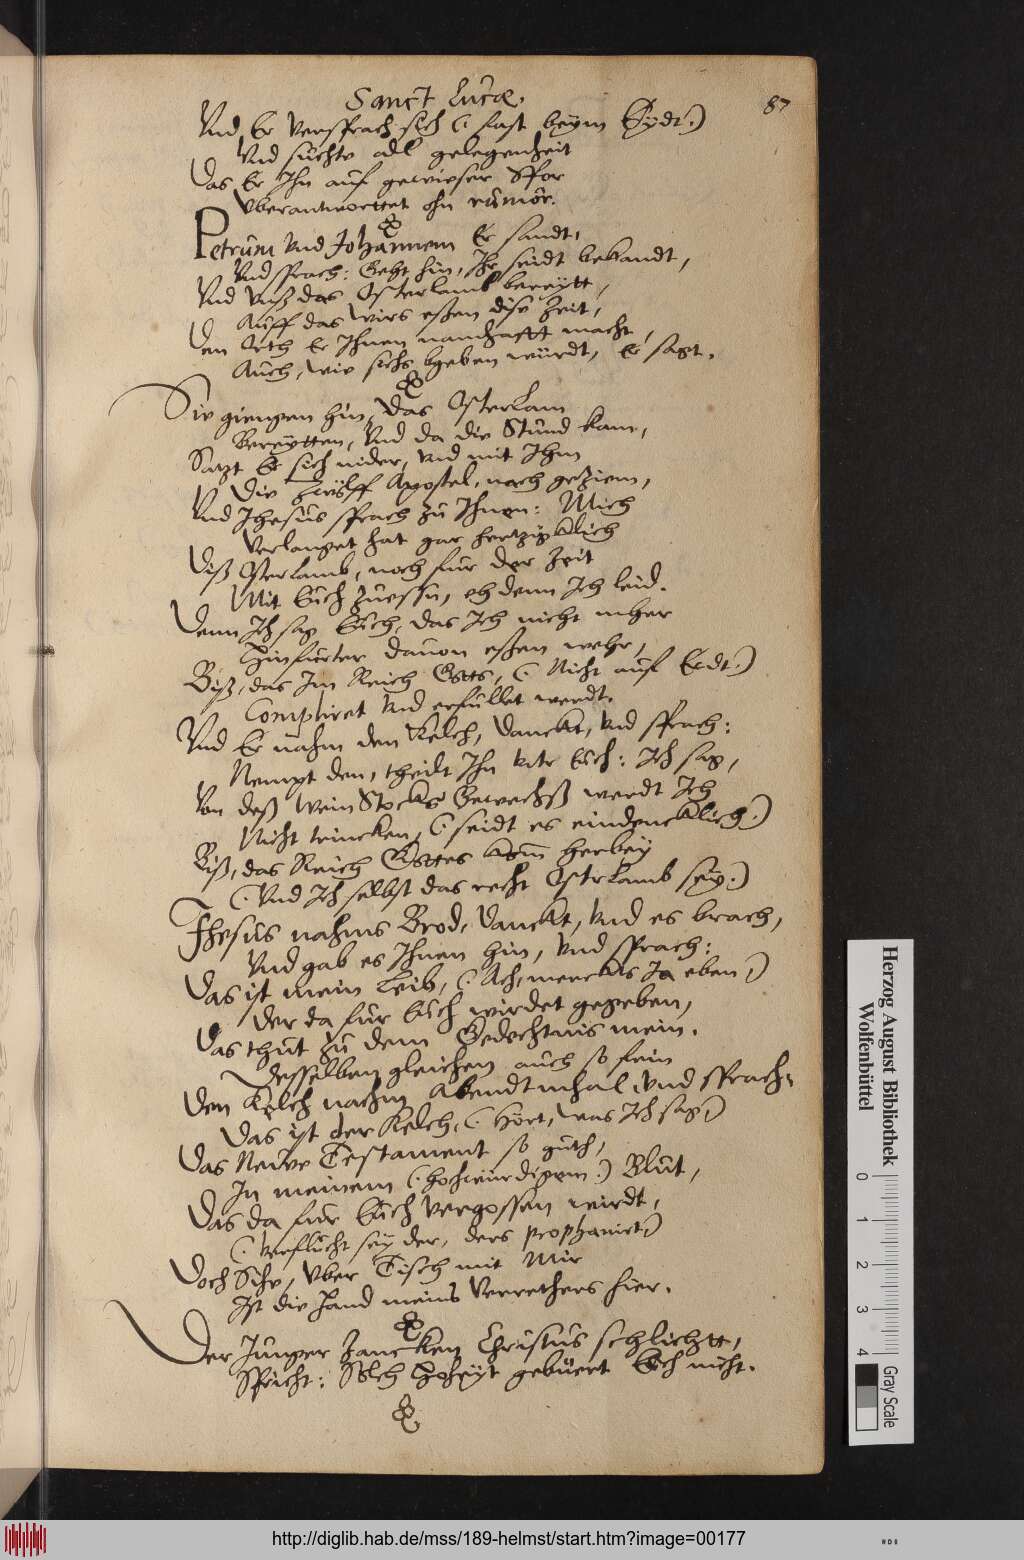 Sanct Lucæ.
87
Vnd Er versprach sich (: fast beym Eydt :)
Vnd suchte all gelegenheit
Das Er Ihn auf gewieser Spor
Vberantworttet ohn rumor.
Petrum vnd Johannem Er sandt,
Vnd sprach: Geht hin, Ihr seidt bekandt,
Vnd vnß das Osterlamb bereytt,
Auff das wirs eßen dise Zeit,
Den Orth Er Ihnen namhafft macht,
Auch, wie sichs bgeben würdt, Er sagt.
Sie giengen hin, das Osterlam
Bereytten, Vnd da die Stund kam,
Satzt Er sich nider, vnd mit Ihm
Die Zwölff Apostel, nach geziem,
Vnd Jhesus sprach zu Ihnen: Mich
Verlanget hat gar hertzigklich
Diß Osterlamb, noch fur der Zeit
Mit Euch zuessn, eh denn Ich leid.
Denn Ich sag Euch, das Ich nicht mher
Hinfurter dauon eßen wehr,
Biß, das Im Reich Gotts, (: Nicht auf Erdt :)
Compliret vnd erfullet werdt.
Vnd Er nahm den Kelch, Danckt, vnd sprach:
Nempt den, theilt Ihn vntr Euch: Ich sag,
Von deß Wein Stocks Gewechß werdt Ich
Nicht trincken, (: seidt es eindencklich :)
Biß, das Reich Gottes kom herbey
(: Vnd Ich selbst das recht Ostrlamb sey :)
Jhesus nahms Brod, Danckt, vnd es brach,
Vnd gab es Ihnen hin, vnd sprach:
Das ist mein Leib, (: Ach, merckts Ja eben :)
Der da fur Euch wirdet gegeben,
Das thut zu dem Gedechtnis mein.
Desselben gleichen auch so fein
Den Kelch nachm Abendtmhal, vnd sprach:
Das ist der Kelch, (: Hort, was Ich sag :)
Das Neuwe Testament so guth,
In meinem (: hochwurdigem :) Blut,
Das da fur Euch vergossen wirdt,
(: verflucht sey der, ders prophanirt :)
Doch Sihe, vber Tisch mit Mir
Ist die Hand meins Verrethers hier.
Der Junger Zancken Christus schlichtt,
Spricht: Solch Hoheyt gebuert Euch nicht.
Herzog August Bibliothek
Wolfenbüttel
0 1 2 3 4
Gray Scale
http://diglib.hab.de/mss/189-helmst/start.htm?image=00177